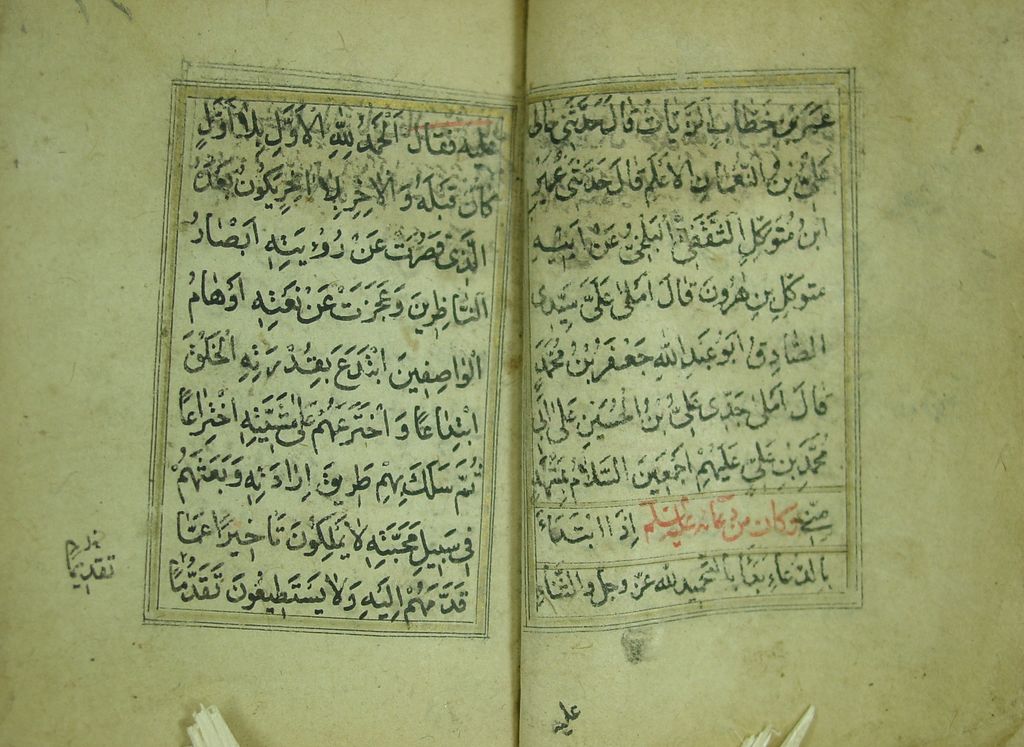 عمير بن خطاب الزيات قال حدثني خالي
علي بن النعمان الأعلم قال حدثني عمير
ابن متوكل الثقفي البلخي عن ابيه
متوكل بن هرون قال املى علي سيدى
الصادق ابو عبد الله جعفر بن محمد
قال املى جدى علي بن الحسين على ابي
محمد بن علي عليهم اجمعين السلام بمشهد
مني وكان من دعائه عليه السلم إذا ابتداء
بالدعاء بدا بالتحميد لله عز وجل والثناء
عليه
عليه فقال اَلْحَمْدُ لِلّٰهِ الْاَوَّلِ بِلَا اَوَّلٍ
كَانَ قَبْلَهُ وَ الْاٰخِرِ بِلَا اٰخِرٍ يَكُونُ بَعْدَهُ
الَّذى قَصُرَتْ عَنْ رُؤْيَتِهِ اَبْصَارُ
النَّاظِرِينَ وَعَجَزَتْ عَنْ نَعْتِهِ اَوْهَامُ
الْوَاصِفِينَ ابْتَدَعَ بِقُدْرَتِهِ الْخَلْقَ
ابْتِدَاعًا وَ اخْتَرَعَهُمْ عَلَى مَشِيَّتِهِ اخْتِرَاعًا
ثُمَّ سَلَكَ بِهِمْ طَرِيقَ اِرَادَتِهِ وَبَعَثَهُمْ
فِي سَبِيلِ مَحَبَّتِهِ لَا يَمْلِكُونَ تَاْخِيرًا عَمَّا
قَدَّمَهُمْ اِلَيْهِ وَلَا يَسْتَطِيعُونَ تَقَدُّمًا
تقديما